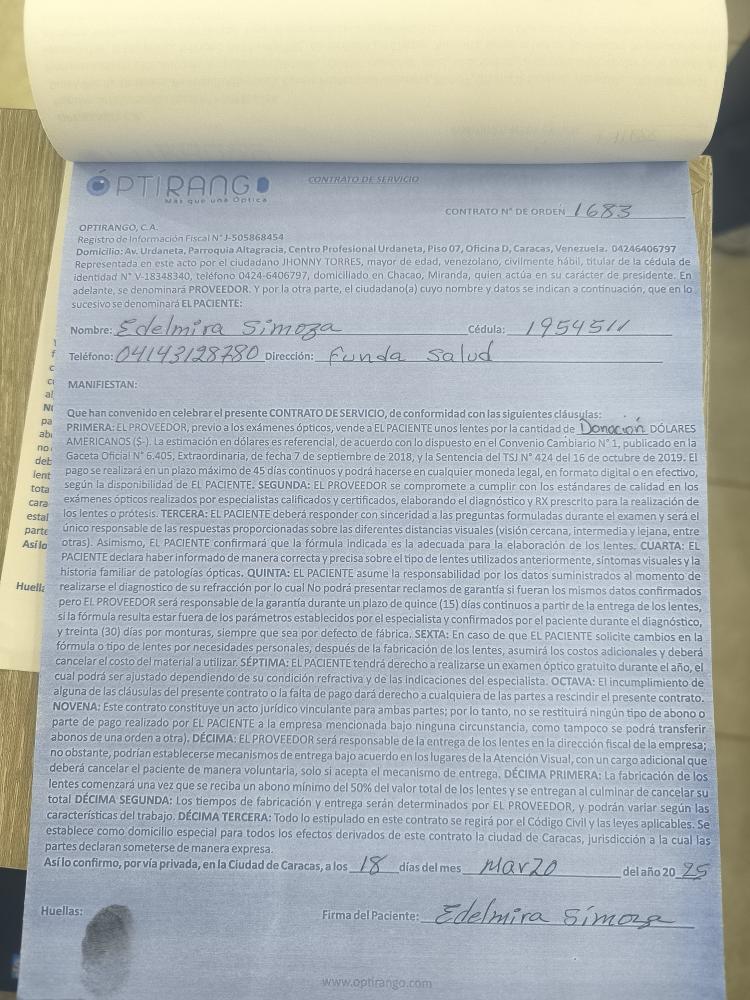 ÓPTIRANGO
Más que una Óptica
CONTRATO DE SERVICIO
CONTRATO N° DE ORDEN 1683
OPTIRANGO, C.A.
Registro de Información Fiscal N° J-505868454
Domicilio: Av. Urdaneta, Parroquia Altagracia, Centro Profesional Urdaneta, Piso 07, Oficina D, Caracas, Venezuela. 04246406797
Representada en este acto por el ciudadano JHONNY TORRES, mayor de edad, venezolano, civilmente hábil, titular de la cédula de
identidad N° V-18348340, teléfono 0424-6406797, domiciliado en Chacao, Miranda, quien actúa en su carácter de presidente. En
adelante, se denominará PROVEEDOR. Y por la otra parte, el ciudadano(a) cuyo nombre y datos se indican a continuación, que en lo
sucesivo se denominará EL PACIENTE:
Nombre: Edelmira Simoza Cédula: 1954511
Teléfono: 04143128780 Dirección: Funda Salud
MANIFIESTAN:
Que han convenido en celebrar el presente CONTRATO DE SERVICIO, de conformidad con las siguientes cláusulas:
PRIMERA: EL PROVEEDOR, previo a los exámenes ópticos, vende a EL PACIENTE unos lentes por la cantidad de Donación DÓLARES
AMERICANOS ($-). La estimación en dólares es referencial, de acuerdo con lo dispuesto en el Convenio Cambiario N° 1, publicado en la
Gaceta Oficial N° 6.405, Extraordinaria, de fecha 7 de septiembre de 2018, y la Sentencia del TSJ N° 424 del 16 de octubre de 2019. El
pago se realizará en un plazo máximo de 45 días continuos y podrá hacerse en cualquier moneda legal, en formato digital o en efectivo,
según la disponibilidad de EL PACIENTE. SEGUNDA: EL PROVEEDOR se compromete a cumplir con los estándares de calidad en los
exámenes ópticos realizados por especialistas calificados y certificados, elaborando el diagnóstico y RX prescrito para la realización de
los lentes o prótesis. TERCERA: EL PACIENTE deberá responder con sinceridad a las preguntas formuladas durante el examen y será el
único responsable de las respuestas proporcionadas sobre las diferentes distancias visuales (visión cercana, intermedia y lejana, entre
otras). Asimismo, EL PACIENTE confirmará que la fórmula indicada es la adecuada para la elaboración de los lentes. CUARTA: EL
PACIENTE declara haber informado de manera correcta y precisa sobre el tipo de lentes utilizados anteriormente, síntomas visuales y la
historia familiar de patologías ópticas. QUINTA: EL PACIENTE asume la responsabilidad por los datos suministrados al momento de
realizarse el diagnostico de su refracción por lo cual No podrá presentar reclamos de garantía si fueran los mismos datos confirmados
pero EL PROVEEDOR será responsable de la garantía durante un plazo de quince (15) días continuos a partir de la entrega de los lentes,
si la fórmula resulta estar fuera de los parámetros establecidos por el especialista y confirmados por el paciente durante el diagnóstico,
y treinta (30) días por monturas, siempre que sea por defecto de fábrica. SEXTA: En caso de que EL PACIENTE solicite cambios en la
fórmula o tipo de lentes por necesidades personales, después de la fabricación de los lentes, asumirá los costos adicionales y deberá
cancelar el costo del material a utilizar. SÉPTIMA: EL PACIENTE tendrá derecho a realizarse un examen óptico gratuito durante el año, el
cual podrá ser ajustado dependiendo de su condición refractiva y de las indicaciones del especialista. OCTAVA: El incumplimiento de
alguna de las cláusulas del presente contrato o la falta de pago dará derecho a cualquiera de las partes a rescindir el presente contrato.
NOVENA: Este contrato constituye un acto jurídico vinculante para ambas partes; por lo tanto, no se restituirá ningún tipo de abono o
parte de pago realizado por EL PACIENTE a la empresa mencionada bajo ninguna circunstancia, como tampoco se podrá transferir
abonos de una orden a otra). DÉCIMA: EL PROVEEDOR será responsable de la entrega de los lentes en la dirección fiscal de la empresa;
no obstante, podrían establecerse mecanismos de entrega bajo acuerdo en los lugares de la Atención Visual, con un cargo adicional que
deberá cancelar el paciente de manera voluntaria, solo si acepta el mecanismo de entrega. DÉCIMA PRIMERA: La fabricación de los
lentes comenzará una vez que se reciba un abono mínimo del 50% del valor total de los lentes y se entregan al culminar de cancelar su
total DÉCIMA SEGUNDA: Los tiempos de fabricación y entrega serán determinados por EL PROVEEDOR, y podrán variar según las
características del trabajo. DÉCIMA TERCERA: Todo lo estipulado en este contrato se regirá por el Código Civil y las leyes aplicables. Se
establece como domicilio especial para todos los efectos derivados de este contrato la ciudad de Caracas, jurisdicción a la cual las
partes declaran someterse de manera expresa.
Así lo confirmo, por vía privada, en la Ciudad de Caracas, a los 18 días del mes Marzo del año 20 25
Huellas: Firma del Paciente: Edelmira Simoza
www.optirango.com